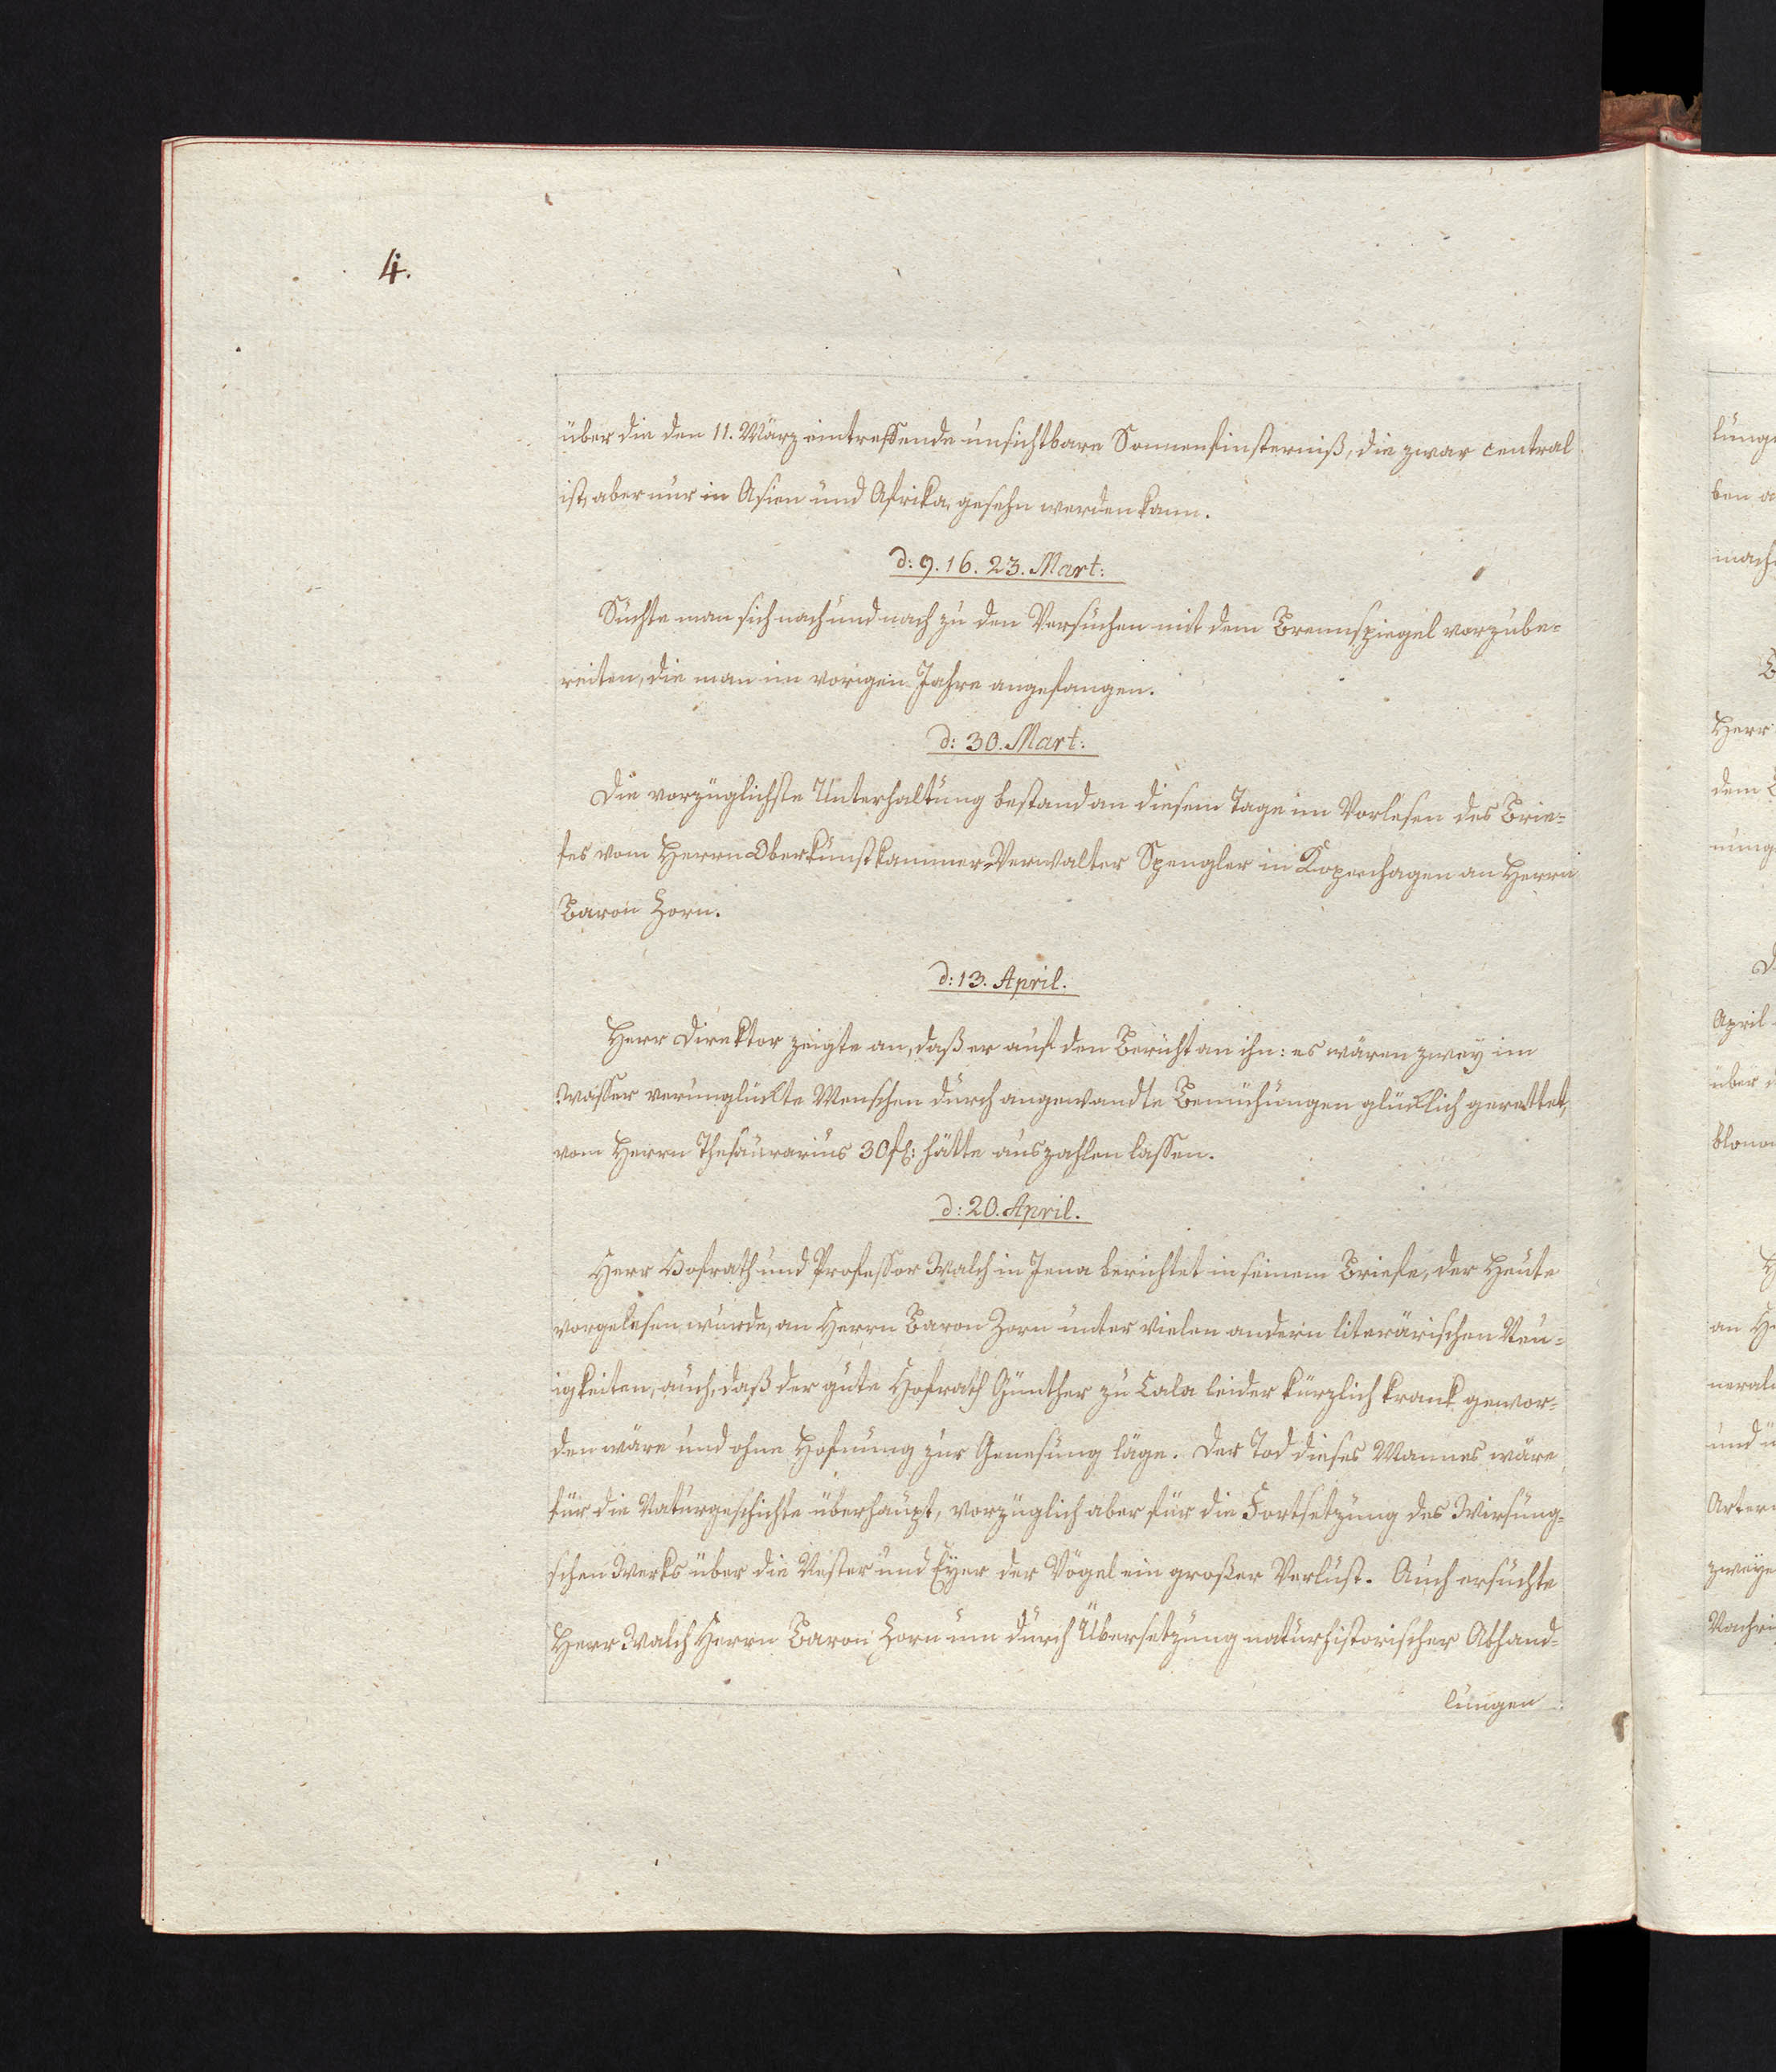 4.
über die den 11. März eintreffende unsichtbare Sonnenfinsterniß, die zwar central
ist, aber nur in Asien und Afrika, gesehn werden kann.
d: 9. 16. 23. Mart:
Suchte man sich nach und nach zu den Versuchen mit dem Brennspiegel vorzube-
reiten, die man im vorigen Jahre angefangen.
d: 30. Mart:
Die vorzüglichste Unterhaltung bestand an diesem Tage im Vorlesen des Brie-
fes vom Herrn Oberkunstkammer-Verwalter Spengler in Kopenhagen an Herrn
Baron Zorn.
d: 13. April.
Herr Direktor zeigte an, daß er auf den Bericht an ihn: es wären zwey im
Wasser verunglückte Menschen durch angewandte Bemühungen glücklich gerettet,
vom Herrn Thesaurarius 30 fl: hätte auszahlen lassen.
d: 20. April.
Herr Hofrath und Professor Walch in Jena berichtet in seinem Briefe, der Heute
vorgelesen wurde, an Herrn Baron Zorn unter vielen andern literärischen Neu-
igkeiten, auch, daß der gute Hofrath Günther zu Cala leider kürzlich krank gewor-
den wäre und ohne Hofnung zur Genesung läge. Der Tod dieses Mannes wäre
für die Naturgeschichte überhaupt, vorzüglich aber für die Fortsetzung des Wirsung-
schen Werks über die Nester und Eyer der Vögel ein großer Verlust. Auch ersuchte
Herr Walch Herrn Baron Zorn um durch Übersetzung naturhistorischer Abhand-
lungen